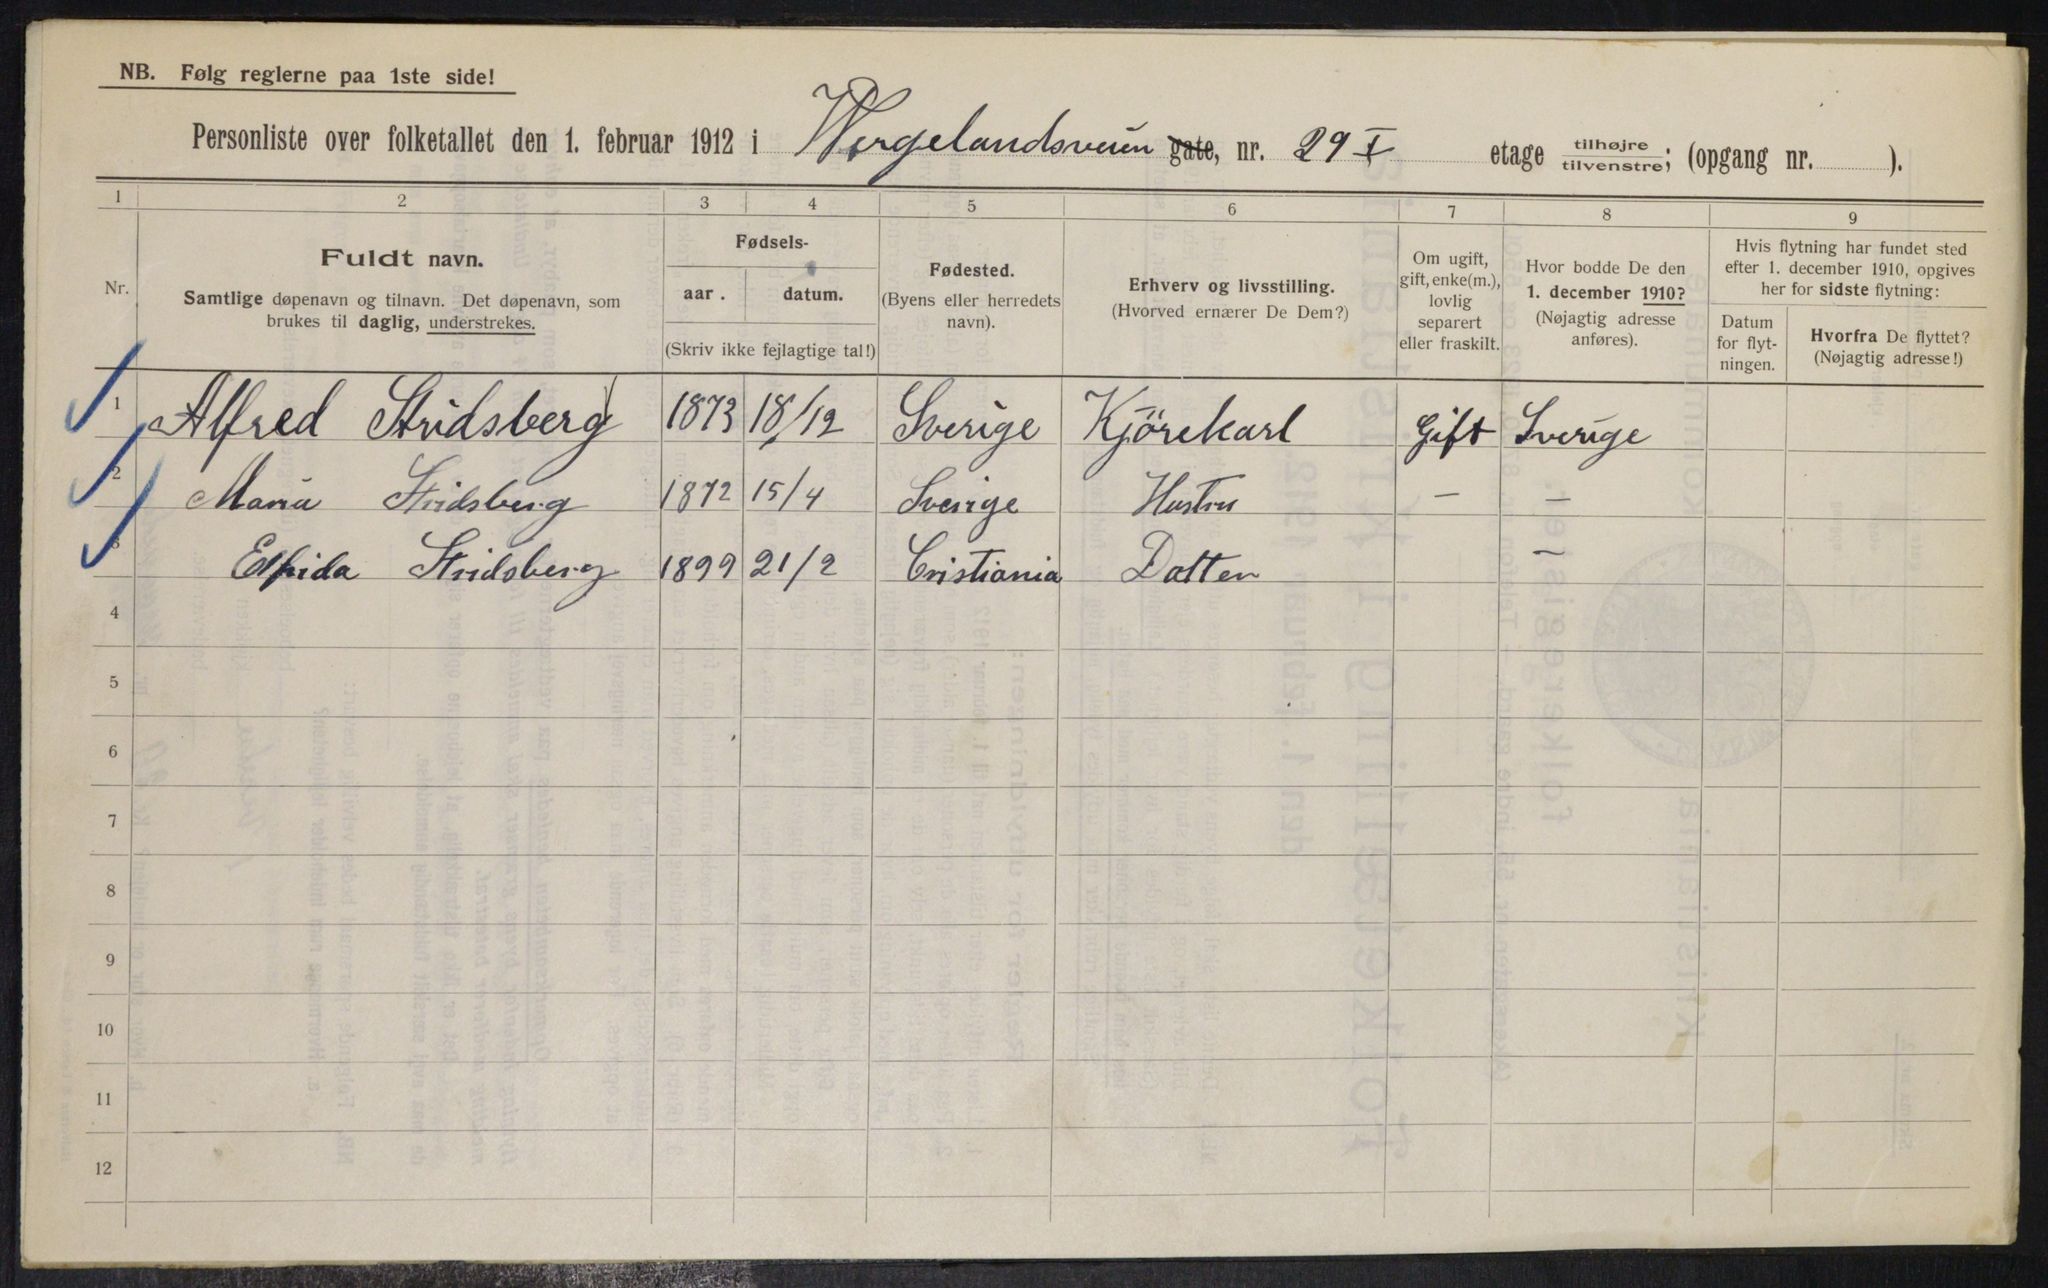 NB. Følg reglerne paa 1ste side!
Personliste over folketallet den 1. februar 1912 i Wergelandsveien gate, nr. 29 I etage tilhøjre tilvenstre; (opgang nr. ).
1 2 3 4 5 6 7 8 9
Nr.
Fuldt navn.
Samtlige døpenavn og tilnavn. Det døpenavn, som
brukes til daglig, understrekes.
Fødsels-
aar. datum.
(Skriv ikke fejlagtige tal!)
Fødested.
(Byens eller herredets
navn).
Erhverv og livsstilling.
(Hvorved ernærer De Dem?)
Om ugift,
gift, enke(m.),
lovlig
separert
eller fraskilt.
Hvor bodde De den
1. december 1910?
(Nøjagtig adresse
anføres).
Hvis flytning har fundet sted
efter 1. december 1910, opgives
her for sidste flytning:
Datum
for flyt-
ningen.
Hvorfra De flyttet?
(Nøjagtig adresse!)
1 Alfred Stridsberg 1873 18/12 Sverige Kjörekarl Gift Sverige
2 Maria Stridsberg 1872 15/4 Sverige Hustru – –
3 Stridsberg 1899 21/2 Cristiania Datter –
4
5
6
7
8
9
10
11
12